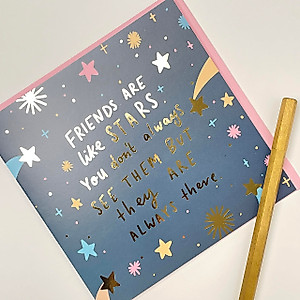 FRIENDS ARE
like STARS
You don't always
SEE THEM BUT
they ARE
ALWAYS there